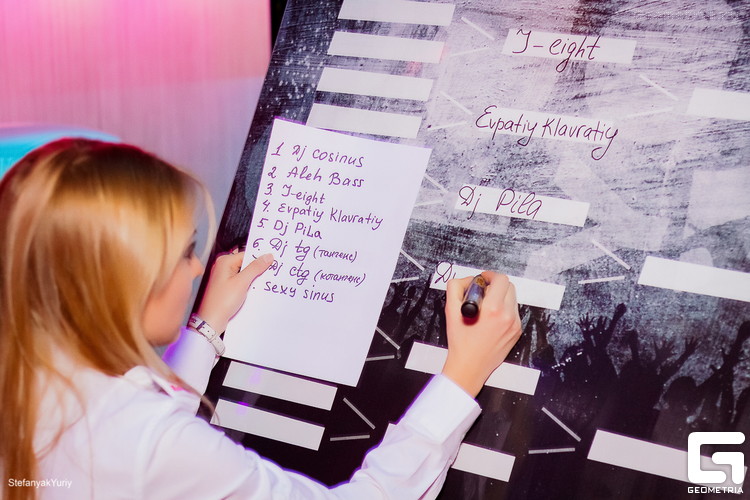 J-eight
Evpatiy Klavratiy
Dj Pila
Dj
1 Dj cosinus
2 Aleh Bass
3. J-eight
4. Evpatiy Klavratiy
5. Dj Pila
6. Dj tg (тангенс)
Dj ctg (котангенс)
. Sexy sinus
StefanyakYuriy
GEOMETRIA